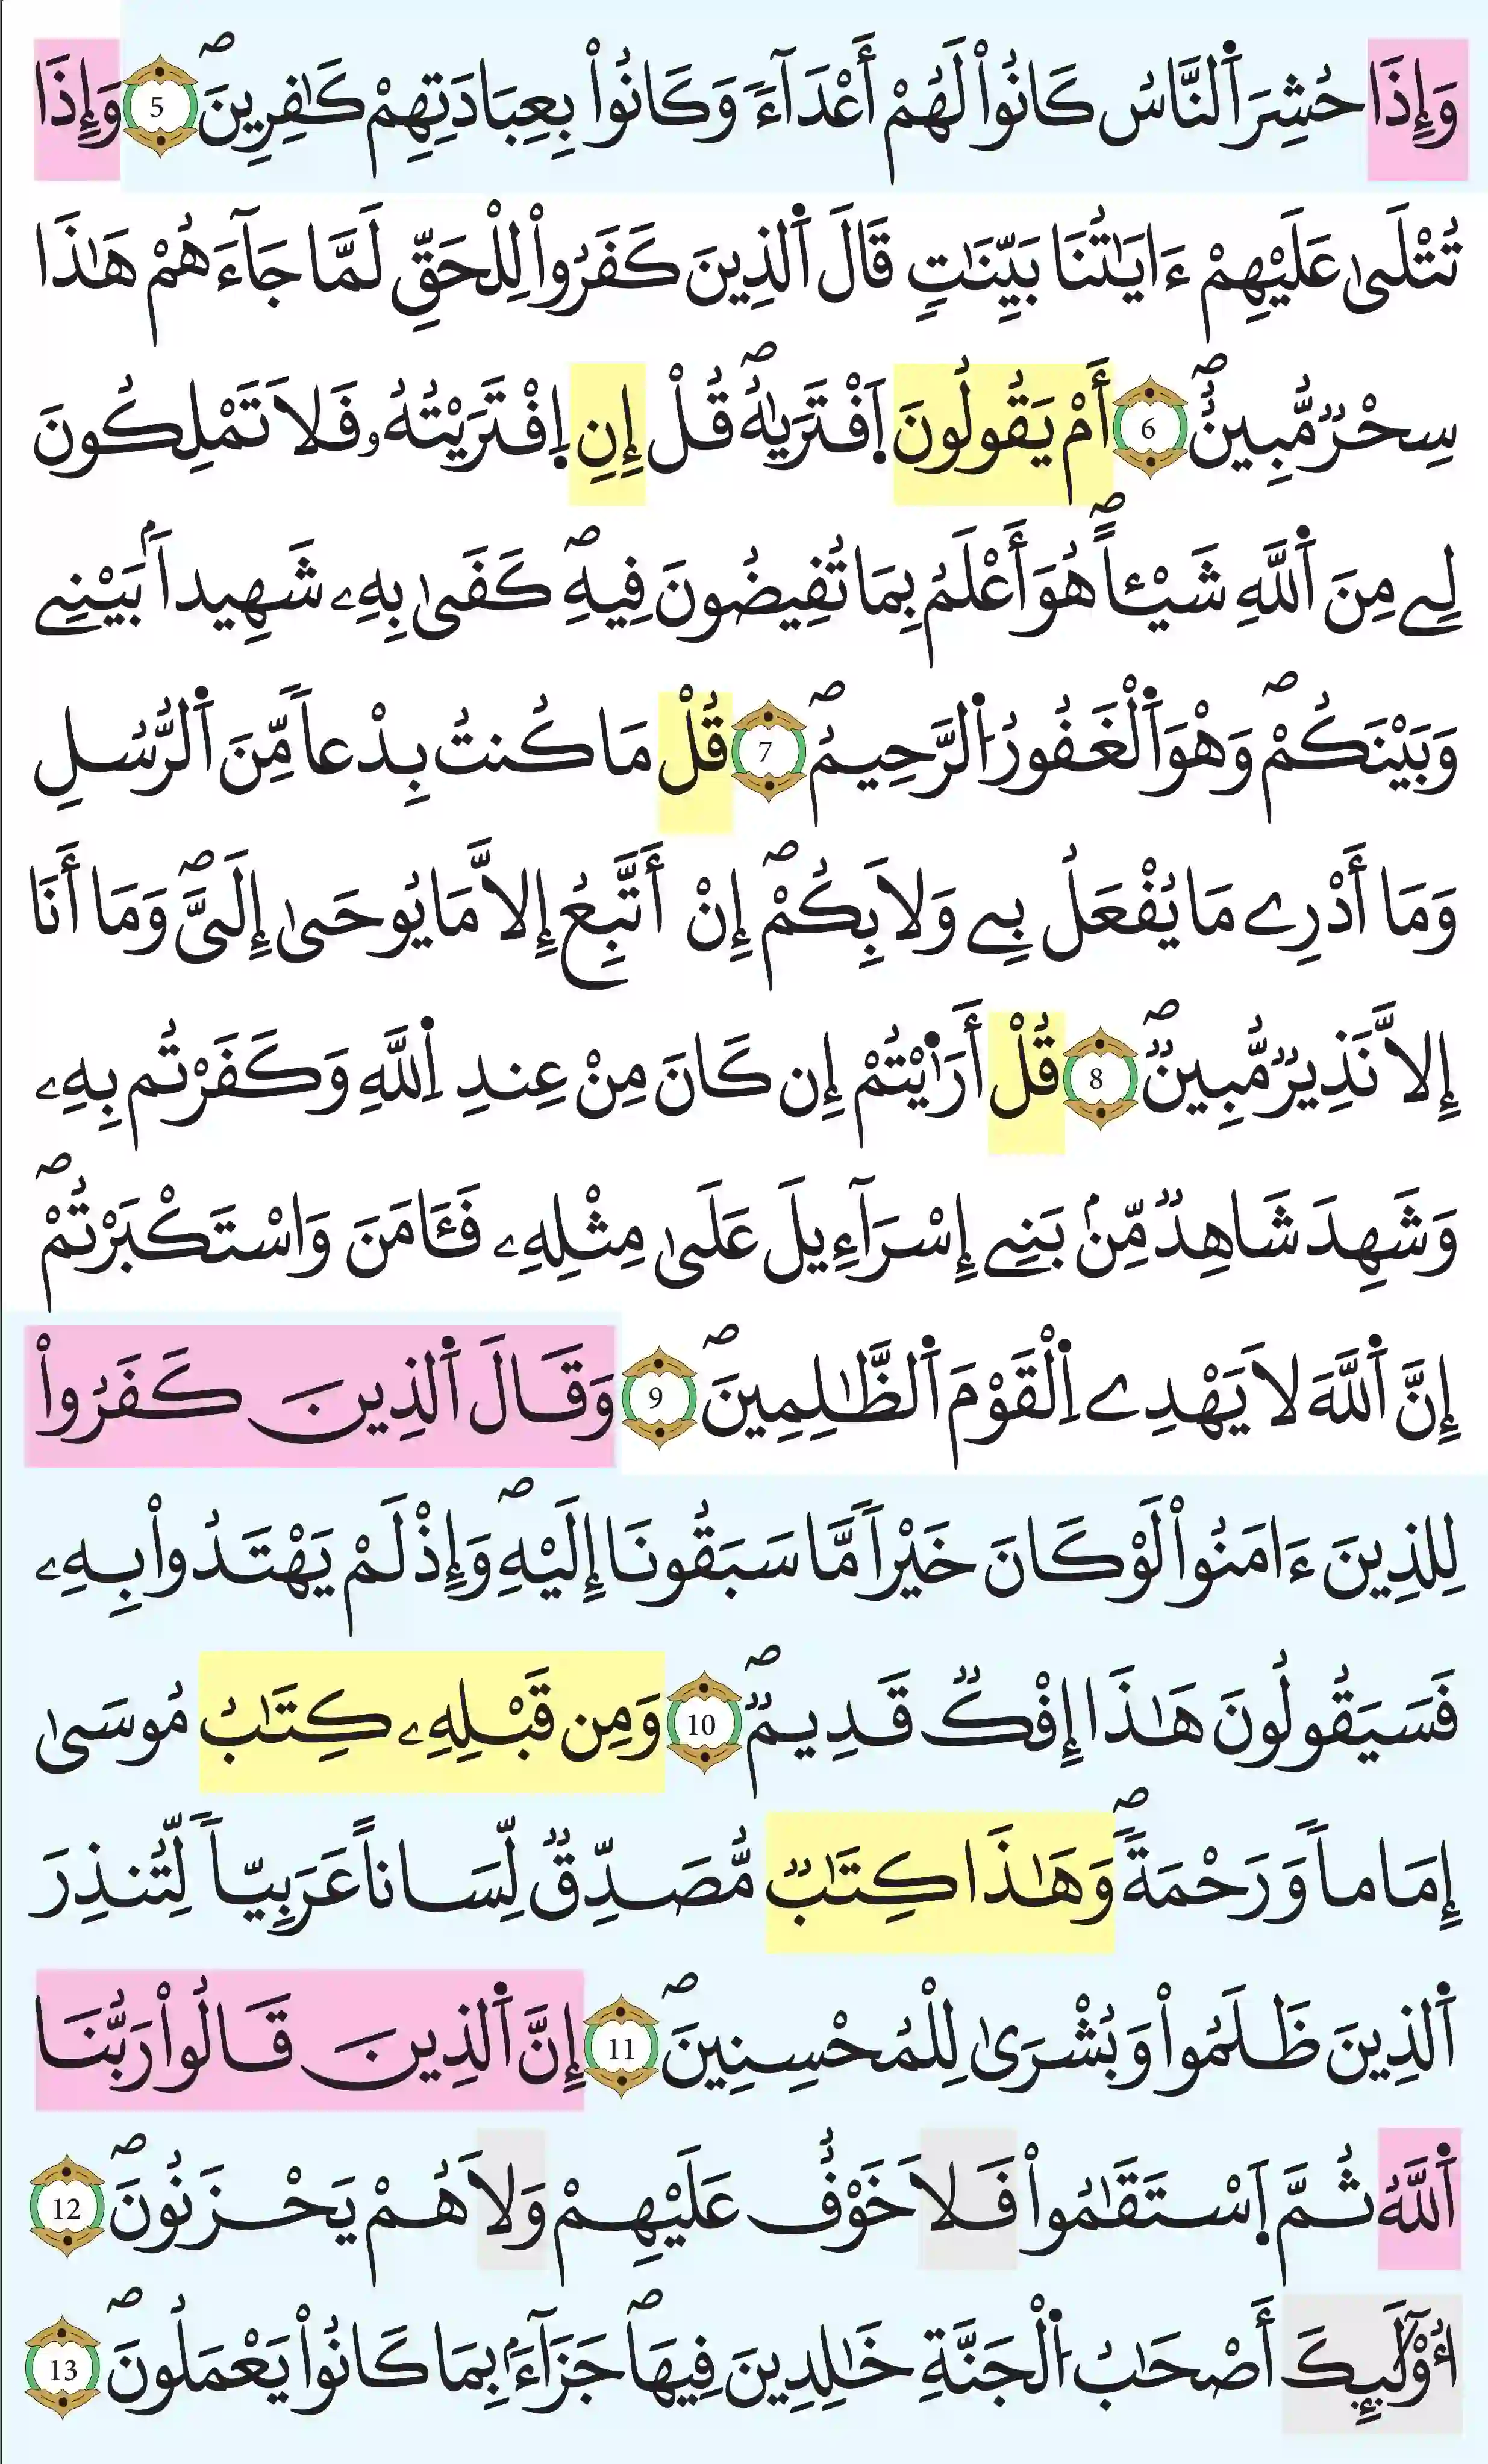 وَإِذَا حُشِرَ اَ۬لنَّاسُ كَانُواْ لَهُمْ أَعْدَآءٗ وَكَانُواْ بِعِبَادَتِهِمْ كَٰفِرِينَۖ 5 وَإِذَا
تُتْلَىٰ عَلَيْهِمْ ءَايَٰتُنَا بَيِّنَٰتٖ قَالَ اَ۬لذِينَ كَفَرُواْ لِلْحَقِّ لَمَّا جَآءَهُمْ هَٰذَا
سِحْرٞ مُّبِينٌۖ 6 أَمْ يَقُولُونَ اَ۪فْتَرَيٰهُۖ قُلْ إِنِ اِ۪فْتَرَيْتُهُۥ فَلَا تَمْلِكُونَ
لِے مِنَ اَ۬للَّهِ شَيْـٔاًۖ هُوَ أَعْلَمُ بِمَا تُفِيضُونَ فِيهِۖ كَفَىٰ بِهِۦ شَهِيداَۢ بَيْنِے
وَبَيْنَكُمْۖ وَهْوَ اَ۬لْغَفُورُ اُ۬لرَّحِيمُۖ 7 قُلْ مَا كُنتُ بِدْعاٗ مِّنَ اَ۬لرُّسُلِ
وَمَا أَدْرِے مَا يُفْعَلُ بِے وَلَا بِكُمْۖ إِنْ أَتَّبِعُ إِلَّا مَا يُوحَىٰ إِلَىَّۖ وَمَا أَنَا
إِلَّا نَذِيرٞ مُّبِينٞۖ 8 قُلْ أَرَٰٓيْتُمْ إِن كَانَ مِنْ عِندِ اِ۬للَّهِ وَكَفَرْتُم بِهِۦ
وَشَهِدَ شَاهِدٞ مِّنۢ بَنِے إِسْرَآءِيلَ عَلَىٰ مِثْلِهِۦ فَـَٔامَنَ وَاسْتَكْبَرْتُمْۖ
إِنَّ اَ۬للَّهَ لَا يَهْدِے اِ۬لْقَوْمَ اَ۬لظَّٰلِمِينَۖ 9 وَقَالَ اَ۬لذِينَ كَفَرُواْ
لِلذِينَ ءَامَنُواْ لَوْ كَانَ خَيْراٗ مَّا سَبَقُونَا إِلَيْهِۖ وَإِذْ لَمْ يَهْتَدُواْ بِهِۦ
فَسَيَقُولُونَ هَٰذَا إِفْكٞ قَدِيمٞۖ 10 وَمِن قَبْلِهِۦ كِتَٰبُ مُوسَىٰ
إِمَاماٗ وَرَحْمَةٗۖ وَهَٰذَا كِتَٰبٞ مُّصَدِّقٞ لِّسَاناً عَرَبِيّاٗ لِّتُنذِرَ
اَ۬لذِينَ ظَلَمُواْ وَبُشْرَىٰ لِلْمُحْسِنِينَۖ 11 إِنَّ اَ۬لذِينَ قَالُواْ رَبُّنَا
اَ۬للَّهُ ثُمَّ اَ۪سْتَقَٰمُواْ فَلَا خَوْفٌ عَلَيْهِمْ وَلَا هُمْ يَحْزَنُونَۖ 12
أُوْلَٰٓئِكَ أَصْحَٰبُ اُ۬لْجَنَّةِ خَٰلِدِينَ فِيهَاۖ جَزَآءَۢ بِمَا كَانُواْ يَعْمَلُونَۖ 13